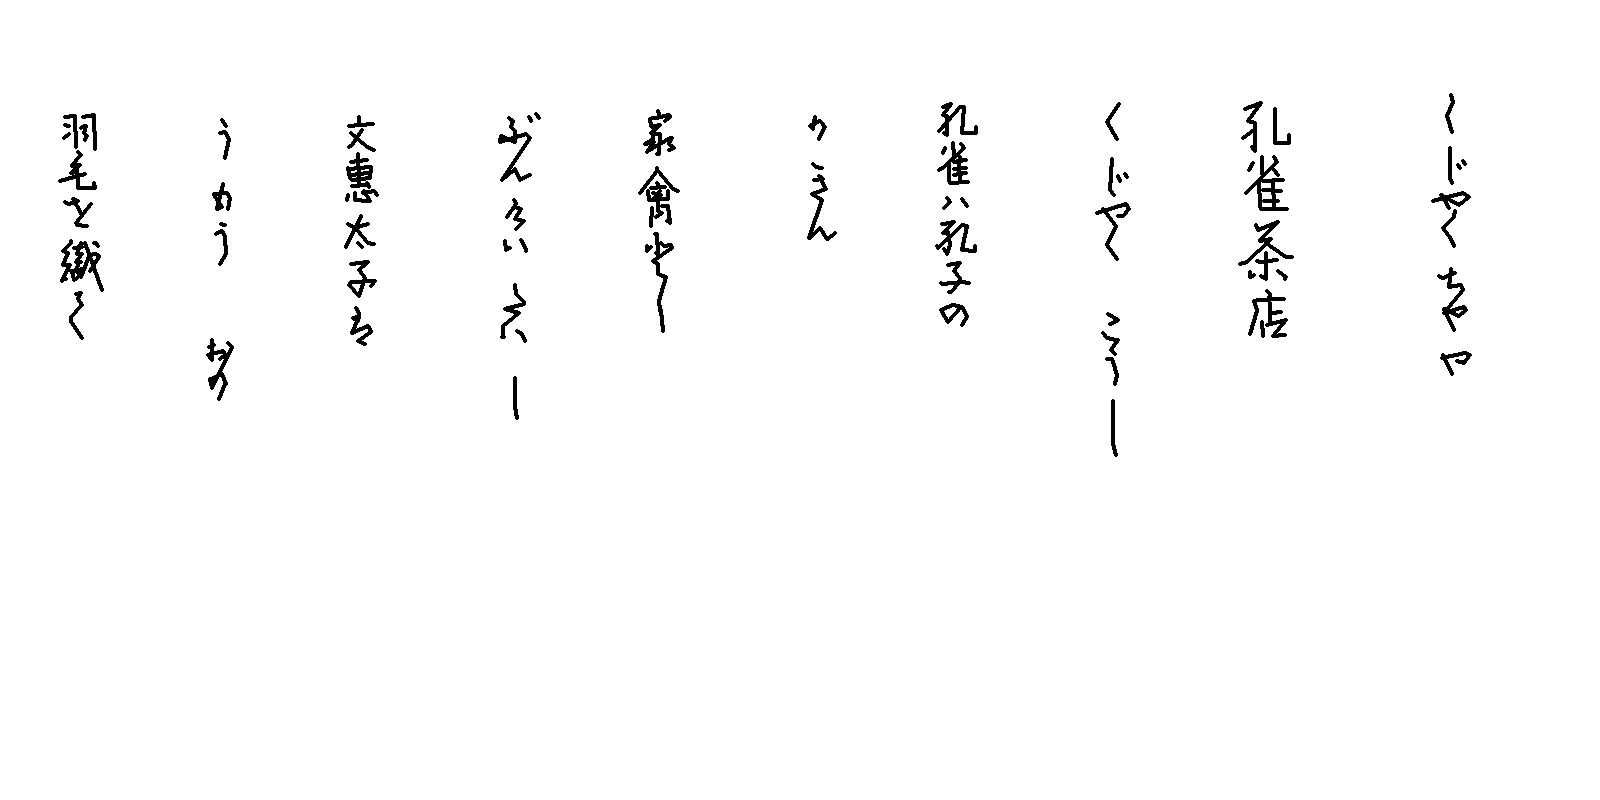 くじやくちやや
孔雀茶店
くじやく こうし
孔雀ハ孔子の
かきん
家禽にし
ぶんけい たいし
文恵太子は
うもう おり
羽毛を織て